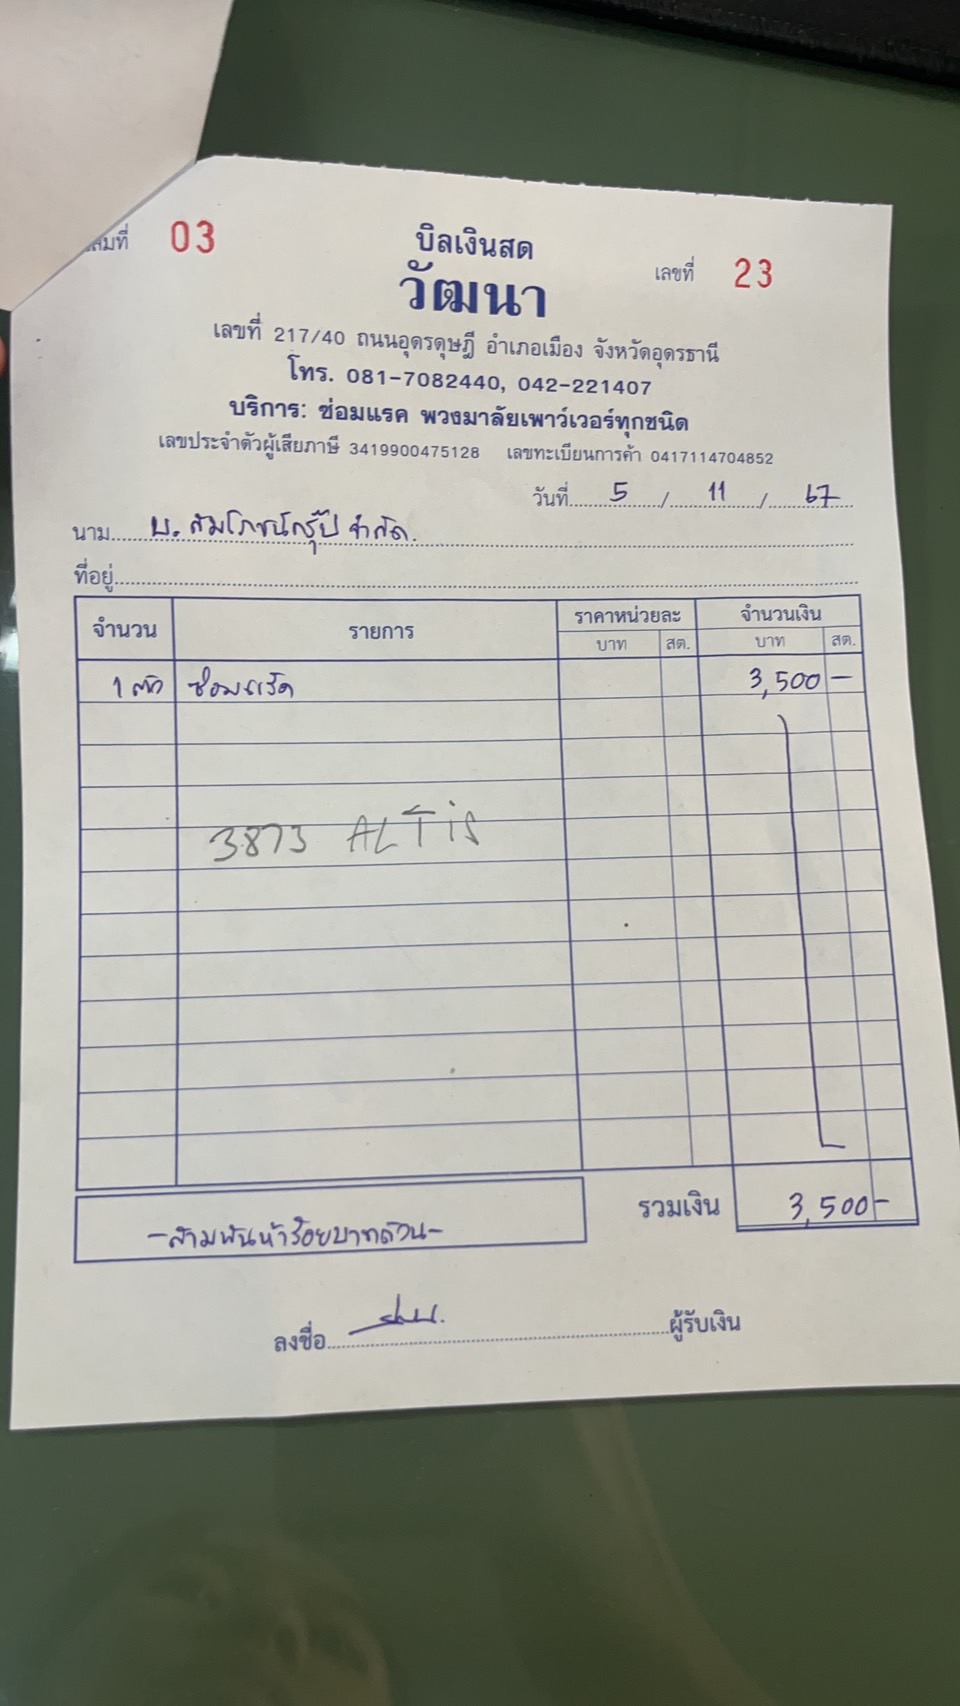 เล่มที่ 03
บิลเงินสด
เลขที่ 23
วัฒนา
เลขที่ 217/40 ถนนอุดรดุษฎี อำเภอเมือง จังหวัดอุดรธานี
โทร. 081-7082440, 042-221407
บริการ: ซ่อมแรค พวงมาลัยเพาว์เวอร์ทุกชนิด
เลขประจำตัวผู้เสียภาษี 3419900475128 เลขทะเบียนการค้า 0417114704852
วันที่ 5 / 11 / 67
นาม บ. สัมโภชน์กรุ๊ป จำกัด.
ที่อยู่
จำนวน รายการ ราคาหน่วยละ จำนวนเงิน
บาท สต. บาท สต.
1 ตัว ซ่อมแร็ค 3,500 -
3873 ALTiS
รวมเงิน 3,500 -
- สามพันห้าร้อยบาทถ้วน -
ลงชื่อ ผู้รับเงิน